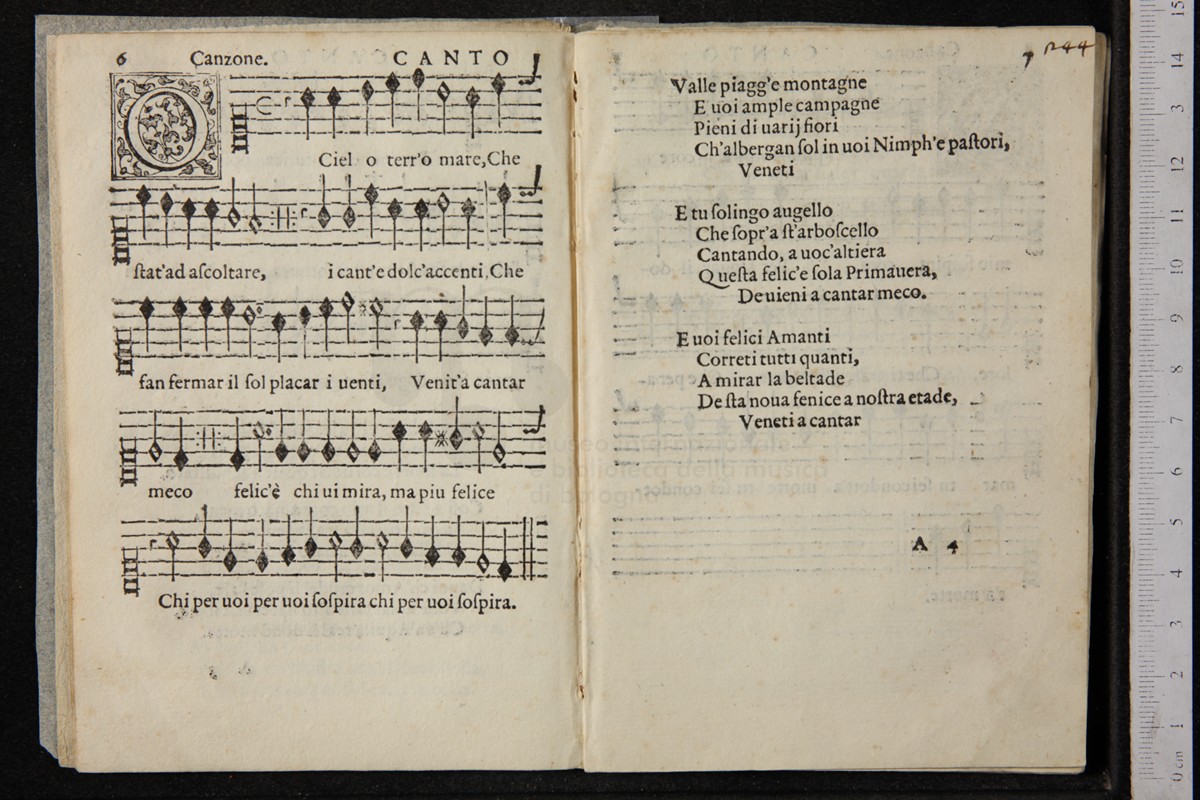 6 Canzone. CANTO
O
Ciel o terr'o mare, Che
ſtat'ad aſcoltare, i cant'e dolc'accenti, Che
fan fermar il ſol placar i uenti, Venit'a cantar
meco felic'è chi ui mira, ma piu felice
Chi per uoi per uoi ſoſpira chi per uoi ſoſpira.
7 244
Valle piagg'e montagne
E uoi ample campagne
Pieni di uarij fiori
Ch'albergan ſol in uoi Nimph'e paſtori,
Veneti
E tu ſolingo augello
Che ſopr'a ſt'arboſcello
Cantando, a uoc'altiera
Queſta felic'e ſola Primauera,
De uieni a cantar meco.
E uoi felici Amanti
Correti tutti quanti,
A mirar la beltade
De ſta noua fenice a noſtra etade,
Veneti a cantar
museo internazionale
biblioteca della musica
di bologna
A 4
15
14
13
12
11
10
9
8
7
6
5
4
3
2
1
0 cm